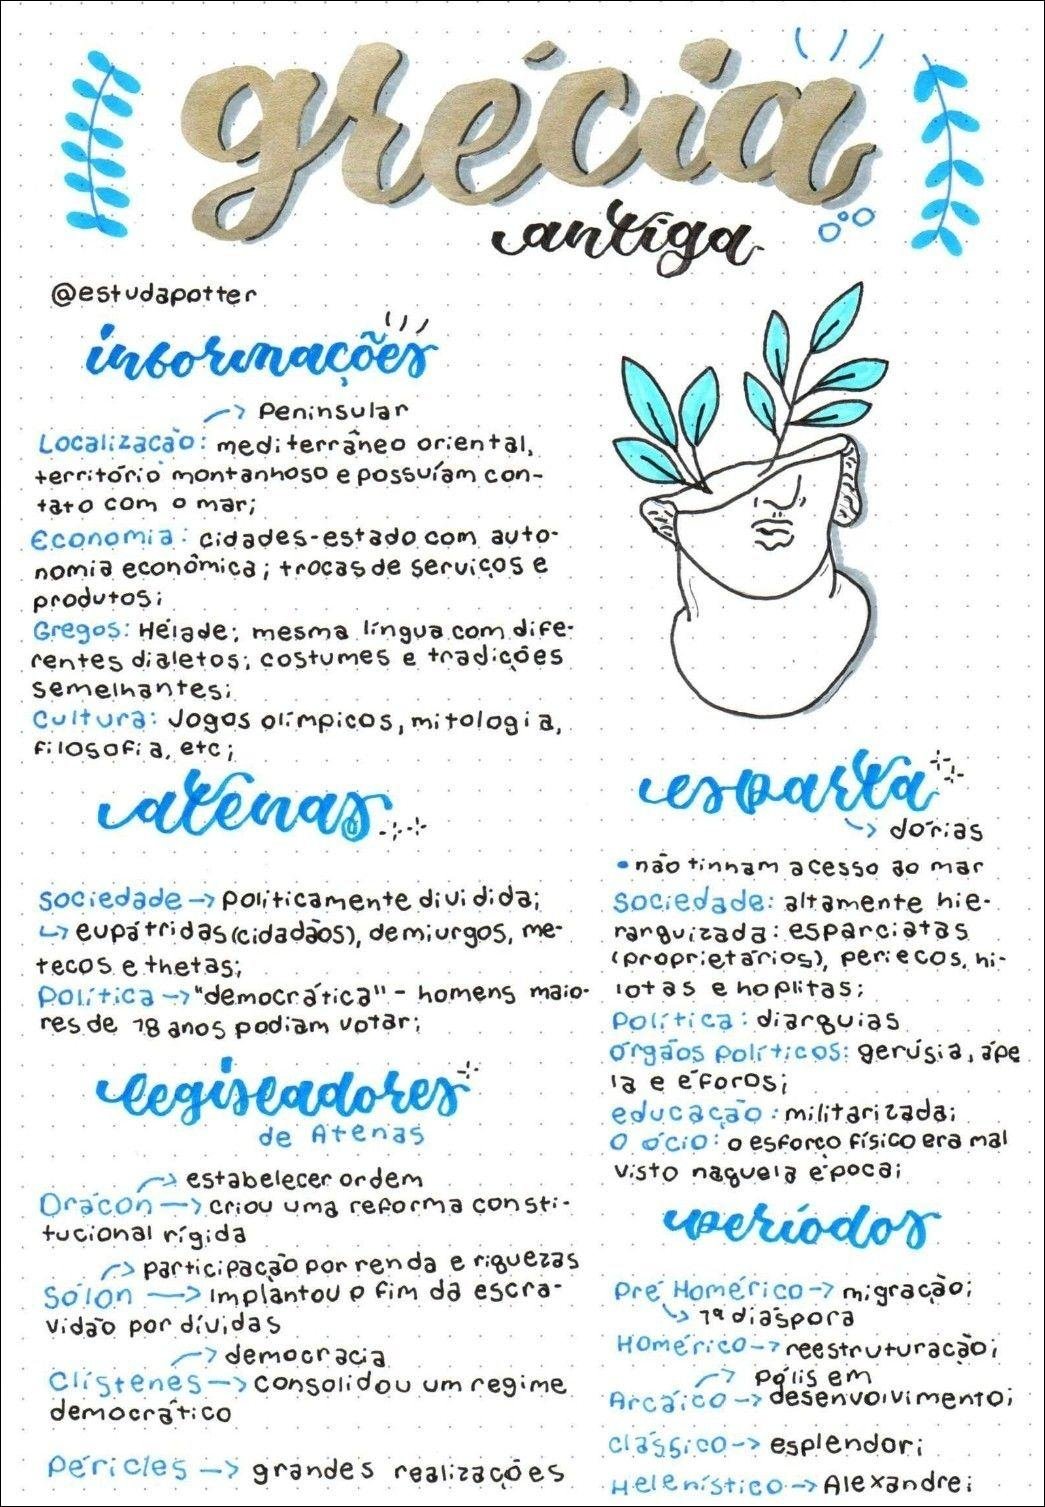 grécia
antiga
@estudapotter
informações
Peninsular
Localização: mediterrâneo oriental,
território montanhoso e possuíam con-
tato com o mar;
Economia: cidades-estado com auto-
nomia econômica; trocas de serviços e
produtos;
Gregos: Hélade; mesma língua com dife-
rentes dialetos; costumes e tradições
semelhantes;
Cultura: Jogos olímpicos, mitologia,
filosofia, etc;
atenas
Sociedade → politicamente dividida;
↳ eupátridas (cidadãos), demiurgos, me-
tecos e thetas;
Política → "democrática" - homens maio-
res de 18 anos podiam votar;
legisladores
de Atenas
estabelecer ordem
Drácon → criou uma reforma consti-
tucional rígida
participação por renda e riquezas
Sólon → Implantou o fim da escra-
vidão por dívidas
democracia
Clístenes → consolidou um regime
democrático
Péricles → grandes realizações
esparta
↳ dórias
• não tinham acesso ao mar
Sociedade: altamente hie-
rarquizada: esparciatas
(proprietários), periecos, hi-
lotas e hoplitas;
Política: diarquias
Órgãos políticos: gerúsia, ápe
la e éforos;
educação: militarizada;
O ócio: o esforço físico era mal
visto naquela época;
períodos
Pré Homérico → migração;
↳ 1ª diáspora
Homérico → reestruturação;
pólis em
Arcáico → desenvolvimento;
Clássico → esplendor;
Helenístico → Alexandre;